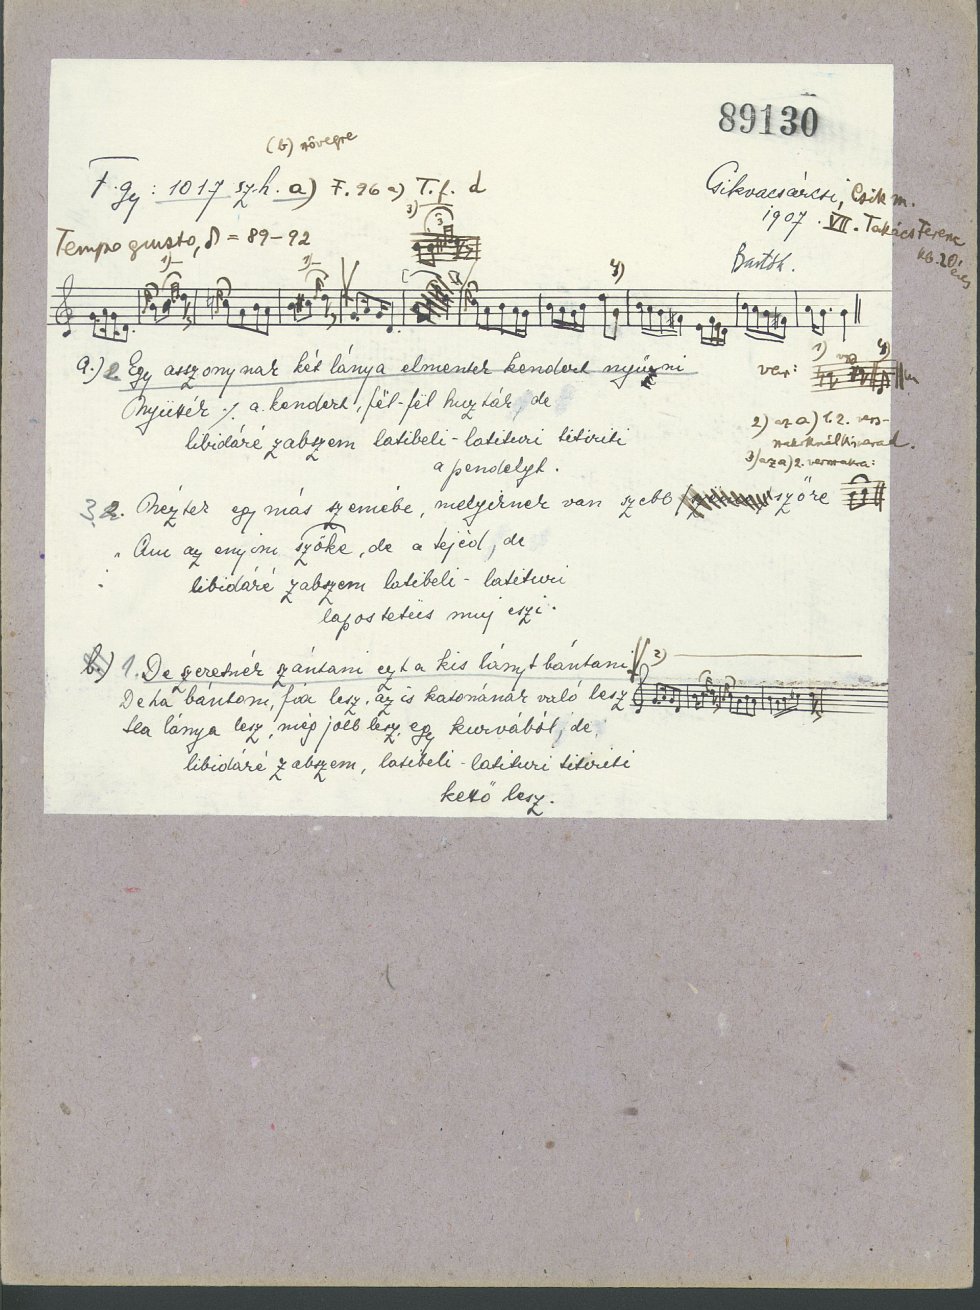 89130
(b) szövegre
F. gy : 1017 sz. h. a) F. 96 a) T. f. d
Csikvacsárcsi, Csik m.
1907. VII. Takács Ferenc
kb. 20 éves
Bartók.
Tempo giusto, = 89-92
3)
3
1)
1)
4)
a.) 2. Egy asszonynak két lánya elmentek kendert nyűni
var:
1)
4)
Nyüték ·/. a kendert, fël-fël huzták, de
libidáré zabszem latibeli-latituri titiriti
a pendelyt.
2) az a) 1. 2. vers-
elmarad.
3) az a) 2. versszakra:
3. Nézték egymás szemébe, melyiknek van szebb szőre
Am az enyim szőke, de a tejed, de
libidáré zabszem latibeli - latituri
lapos tetüis muj eszi.
b.) 1. De szeretnék szántani ezt a kis lányt bántani
2)
De ha bántom, fia lesz, az is katonának való lesz
Ha lánya lesz, még jobb lesz, egy kurvából, de
libidáré zabszem, latibeli - latituri titiriti
kettő lesz.